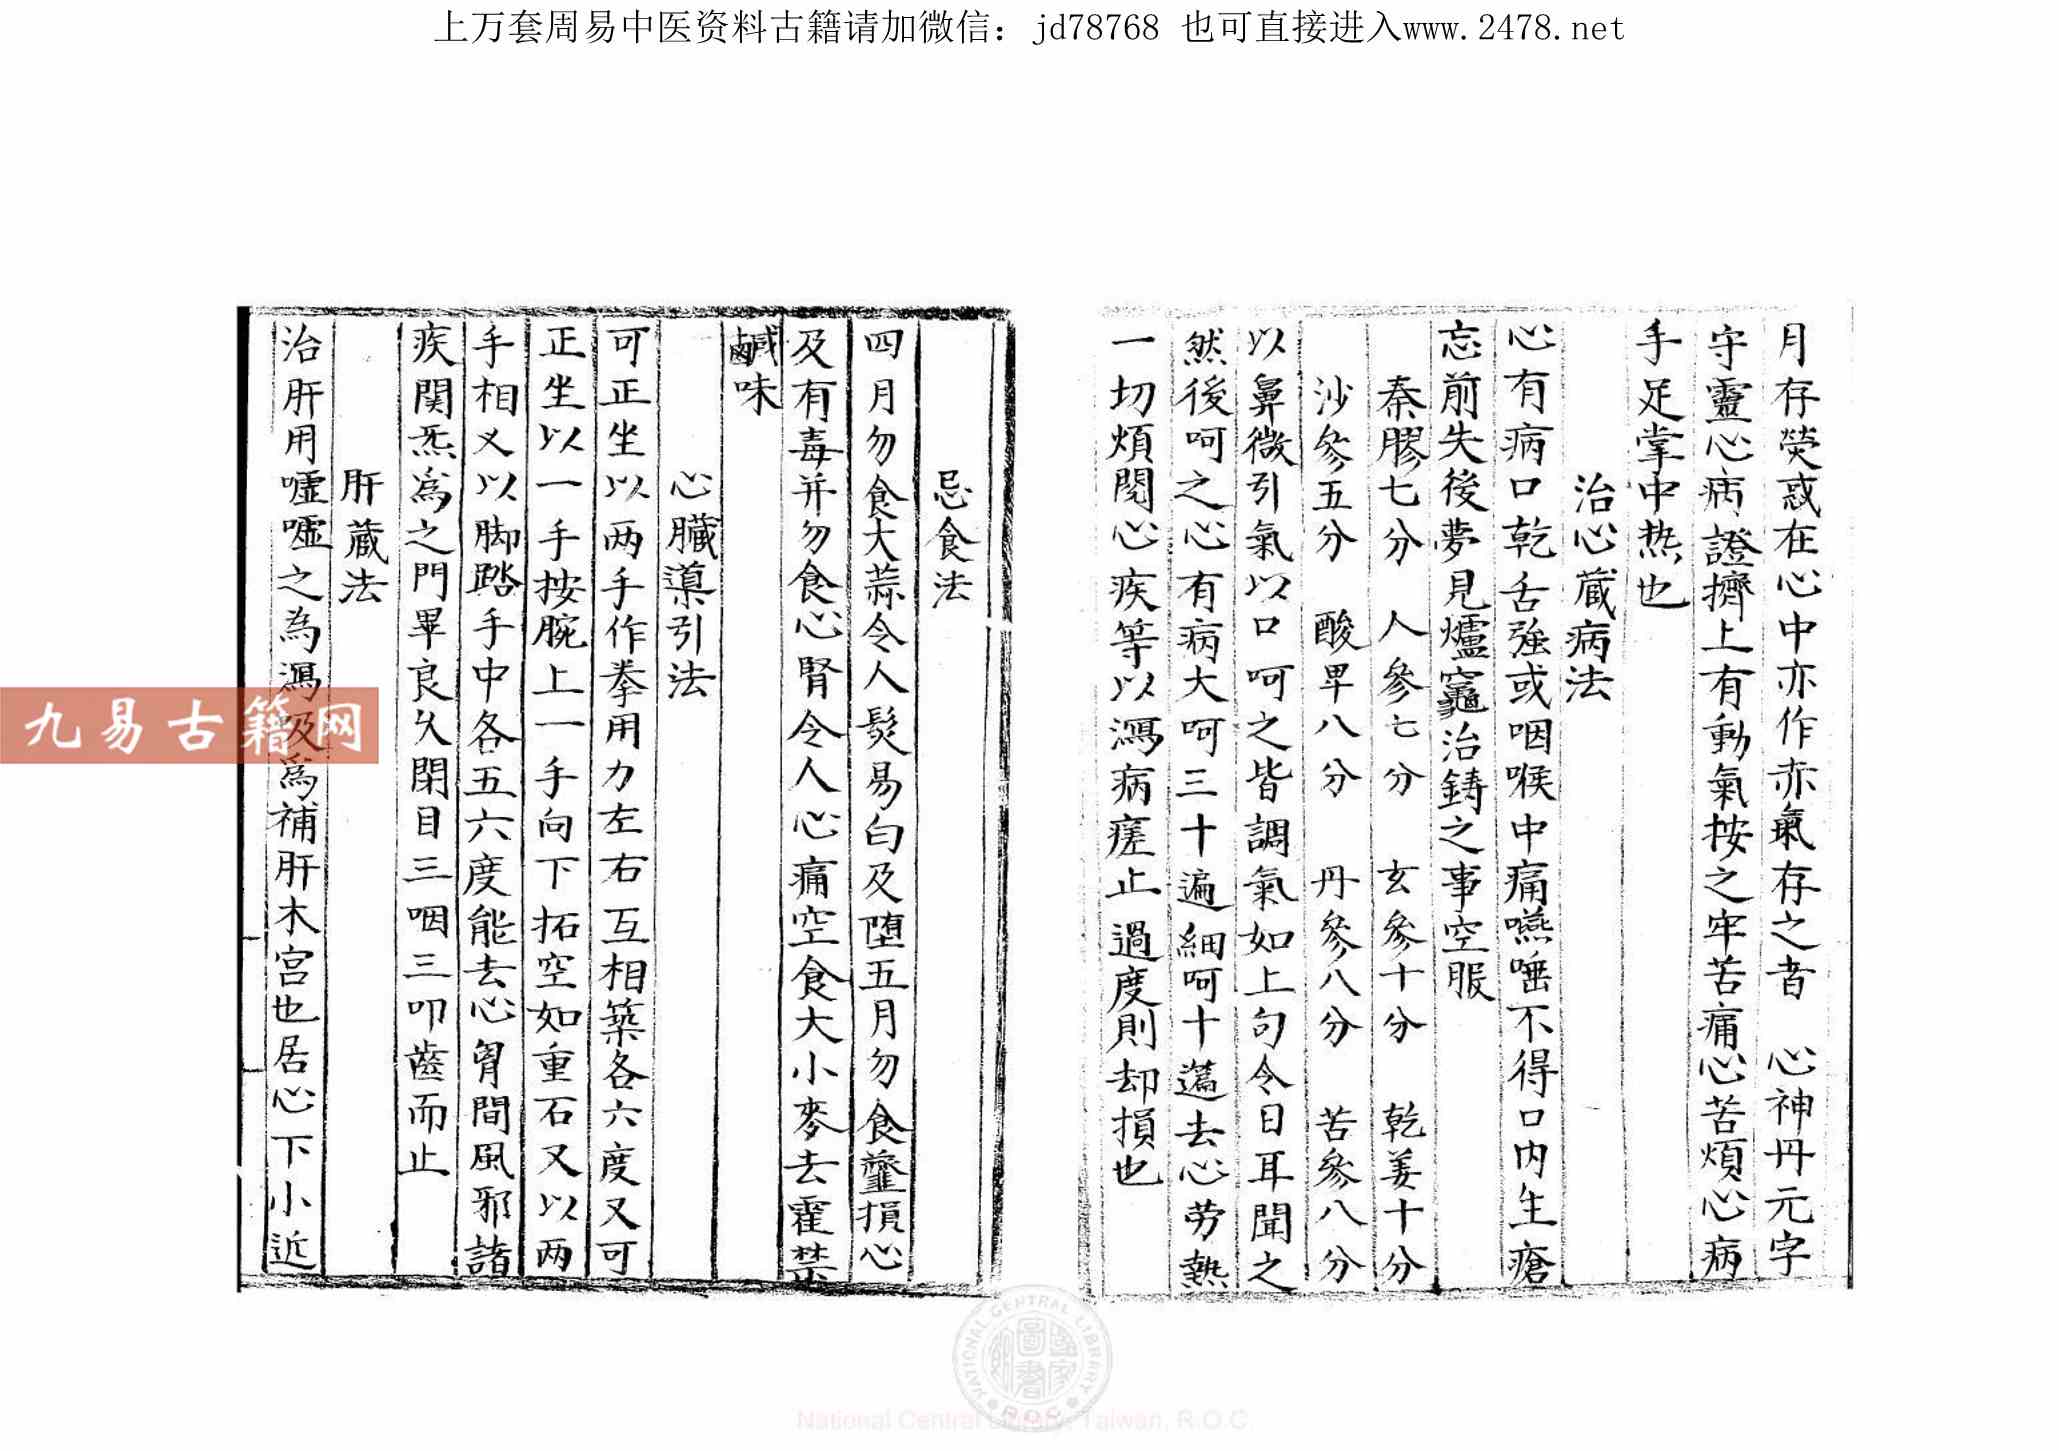 上万套周易中医资料古籍请加微信：jd78768 也可直接进入www.2478.net
月存熒惑在心中亦作赤氣存之者　心神丹元字
守靈心病證擠上有動氣按之牢苦痛心苦煩心病
手足掌中热也
治心藏病法
心有病口乾舌強或咽喉中痛嚥唾不得口内生瘡
忘前失後夢見爐竈治鑄之事空服
秦膠七分　人參七分　玄參十分　乾姜十分
沙參五分　酸旱八分　丹參八分　苦參八分
以鼻微引氣以口呵之皆調氣如上句令日耳聞之
然後呵之心有病大呵三十遍細呵十遍去心劳熱
一切煩悶心疾等以瀉病瘥止過度則却損也
忌食法
四月勿食大蒜令人髮易白及墮五月勿食虀損心
及有毒并勿食心腎令人心痛空食大小麥去霍禁
鹹味
心臟導引法
可正坐以两手作拳用力左右互相築各六度又可
正坐以一手按腕上一手向下拓空如重石又以两
手相叉以脚踏手中各五六度能去心胷間風邪諸
疾関炁為之閇畢良久閉目三咽三叩齒而止
肝藏法
治肝用噓噓之為瀉吸爲補肝木宮也居心下小近
九易古籍网
NATIONAL CENTRAL LIBRARY
R.O.C
國家圖書館
National Central Library, Taiwan, R.O.C